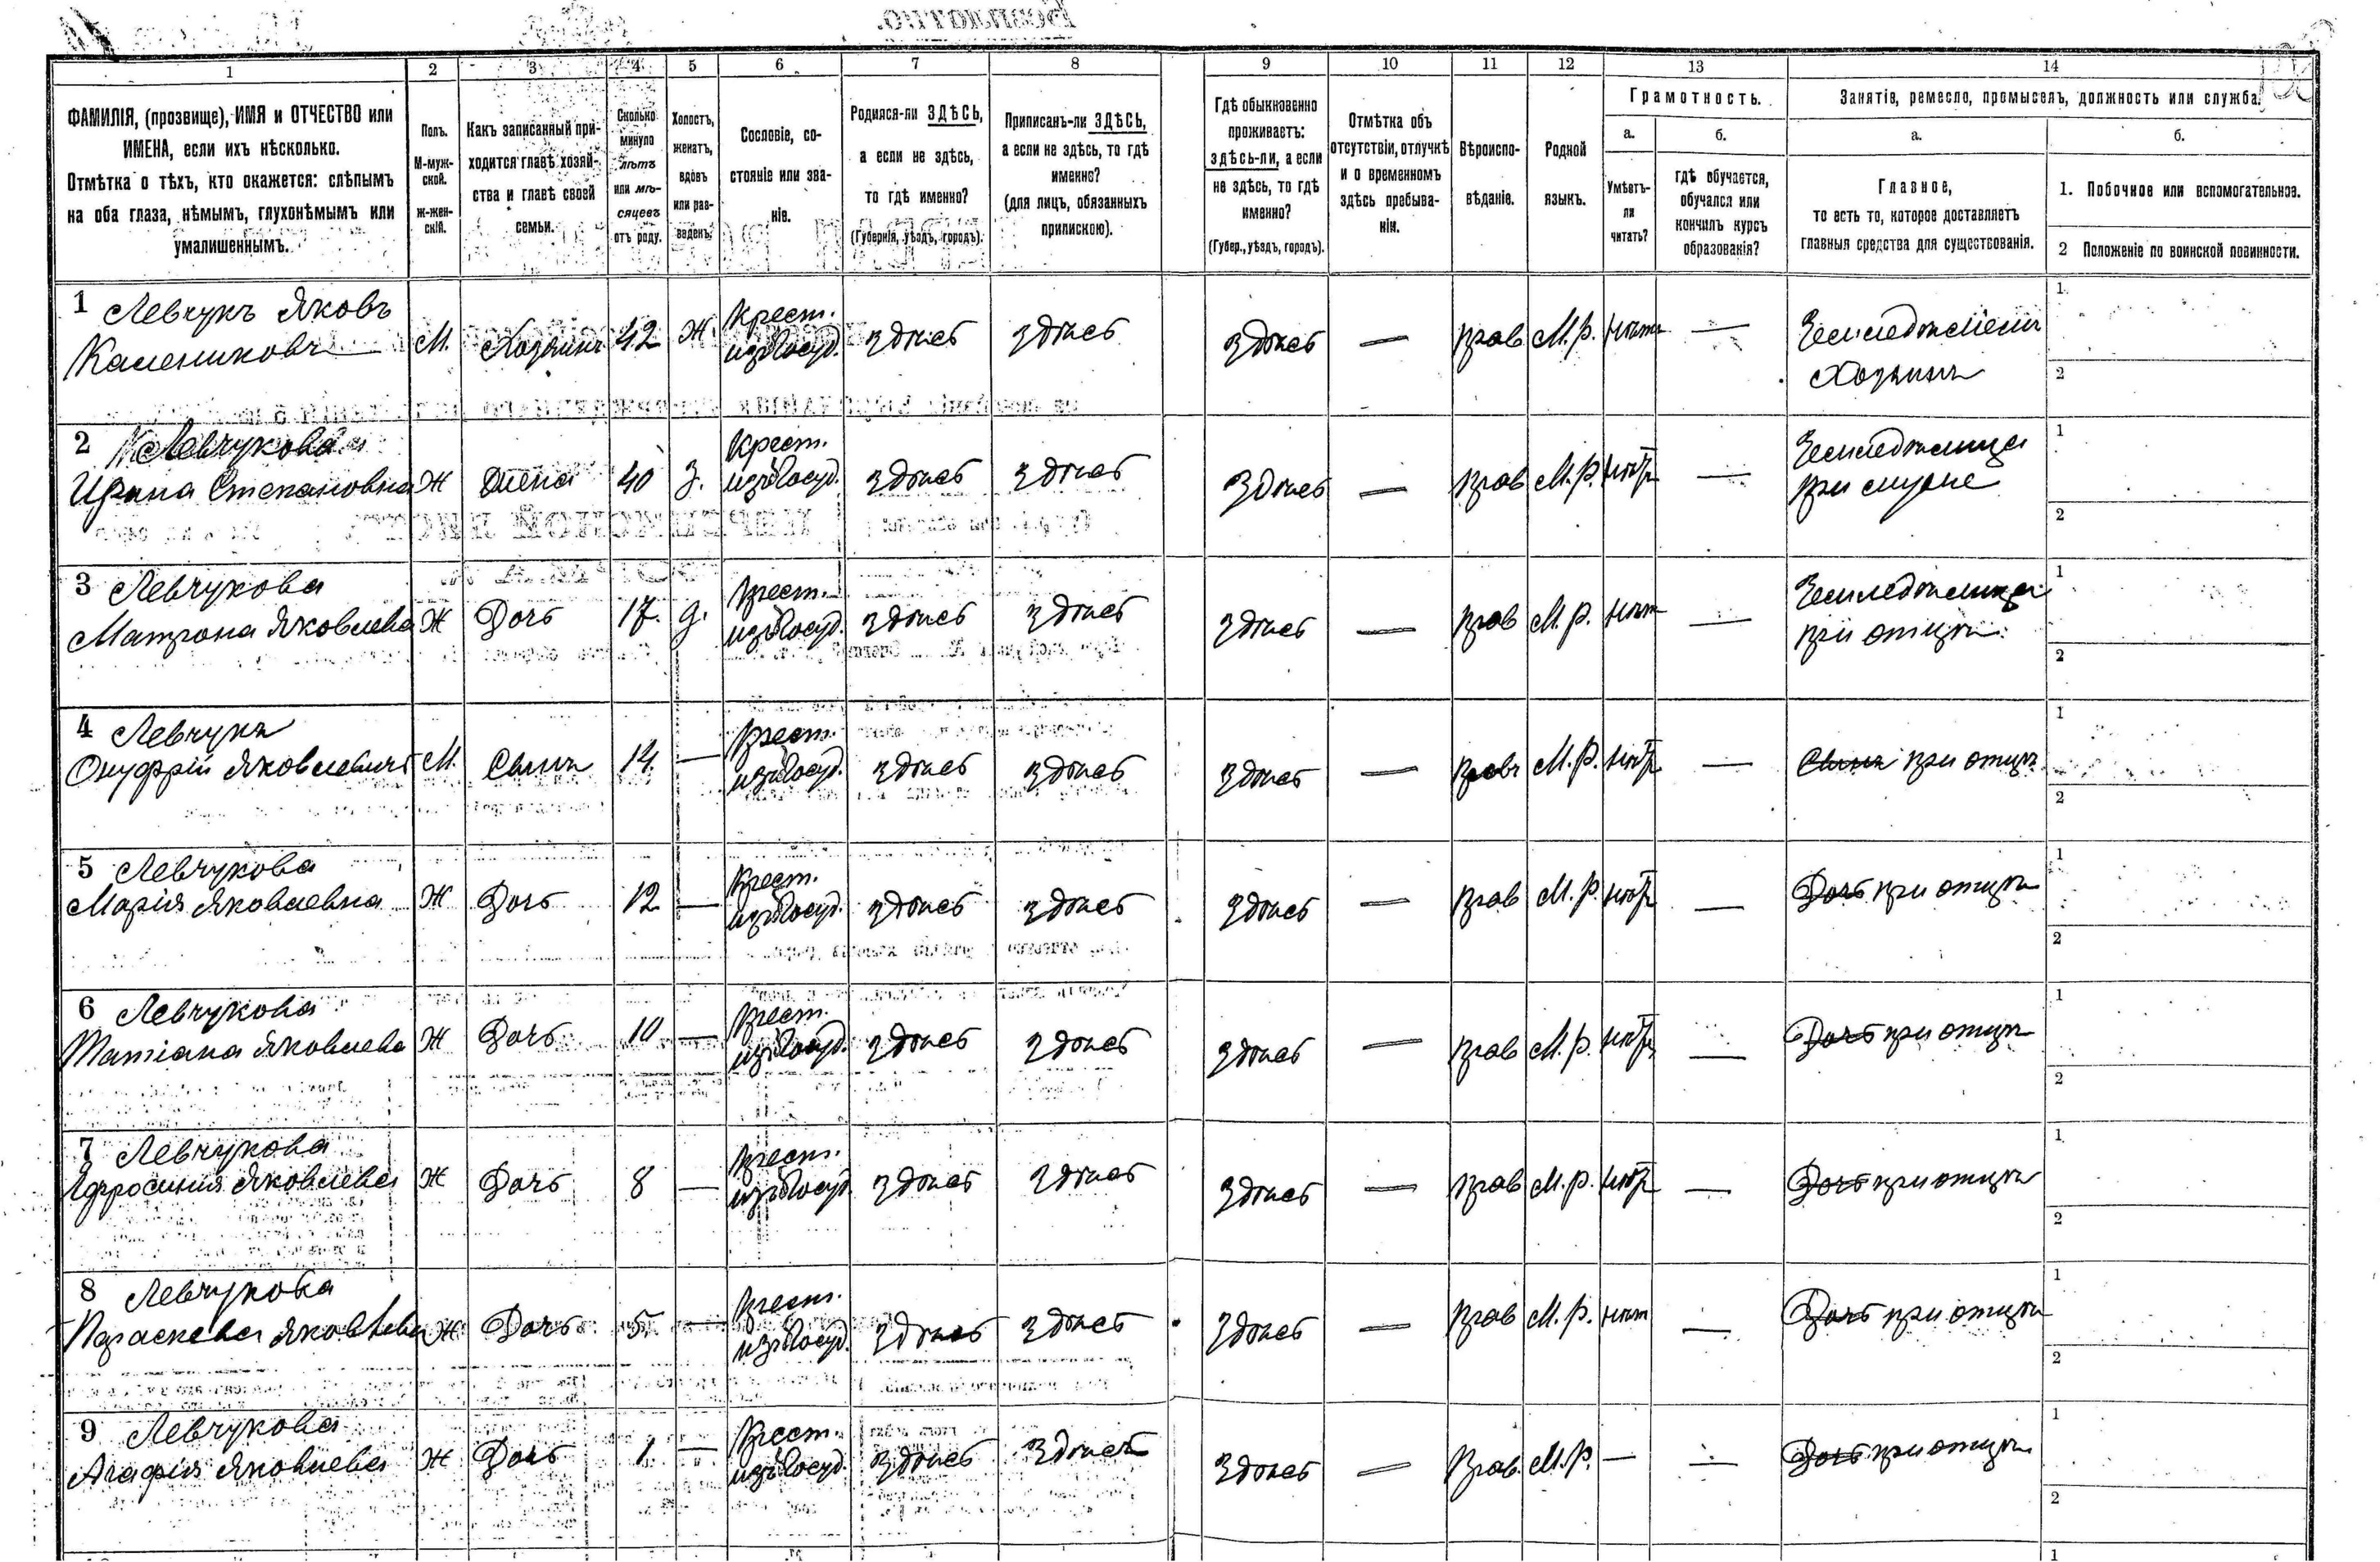 1
2
3
4
5
6
7
8
9
10
11
12
13
14
ФАМИЛІЯ, (прозвище), ИМЯ и ОТЧЕСТВО или
ИМЕНА, если ихъ нѣсколько.
Отмѣтка о тѣхъ, кто окажется: слѣпымъ
на оба глаза, нѣмымъ, глухонѣмымъ или
умалишеннымъ.
Полъ.
М-муж-
ской.
ж-жен-
скій.
Какъ записанный при-
ходится главѣ хозяй-
ства и главѣ своей
семьи.
Сколько
минуло
лѣтъ
или мѣ-
сяцевъ
отъ роду.
Холостъ,
женатъ,
вдовъ
или раз-
веденъ.
Сословіе, со-
стояніе или зва-
ніе.
Родился-ли ЗДѢСЬ,
а если не здѣсь,
то гдѣ именно?
(Губернія, уѣздъ, городъ).
Приписанъ-ли ЗДѢСЬ,
а если не здѣсь, то гдѣ
именно?
(для лицъ, обязанныхъ
припискою).
Гдѣ обыкновенно
проживаетъ:
здѣсь-ли, а если
не здѣсь, то гдѣ
именно?
(Губер., уѣздъ, городъ).
Отмѣтка объ
отсутствіи, отлучкѣ
и о временномъ
здѣсь пребыва-
ніи.
Вѣроиспо-
вѣданіе.
Родной
языкъ.
Грамотность.
а.
Умѣетъ-
ли
читать?
б.
гдѣ обучается,
обучался или
кончилъ курсъ
образованія?
Занятія, ремесло, промыселъ, должность или служба.
а.
Главное,
то есть то, которое доставляетъ
главныя средства для существованія.
б.
1. Побочное или вспомогательное.
2 Положеніе по воинской повинности.
1 Левчукъ Яковъ
Калениковъ М. Хозяинъ 42 Ж Крест.
изъ госуд. здѣсь здѣсь здѣсь — Прав М. р. нѣтъ — Земледѣлецъ
Хозяинъ
1
2
2 Левчукова
Ирина Степановна Ж Жена 40 З. Крест.
изъ госуд. здѣсь здѣсь здѣсь — Прав М. р. нѣтъ — Земледѣлица
при мужѣ
1
2
3 Левчукова
Матрона Яковлева Ж Дочь 17. д. Крест.
изъ госуд. здѣсь здѣсь здѣсь — Прав М. р. нѣтъ — Земледѣлица
при отцѣ
1
2
4 Левчукъ
Онуфрій Яковлевичъ М. Сынъ 14 — Крест.
изъ госуд. здѣсь здѣсь здѣсь — Прав М. р. нѣтъ — Сынъ при отцѣ
1
2
5 Левчукова
Марія Яковлевна Ж Дочь 12 — Крест.
изъ госуд. здѣсь здѣсь здѣсь — Прав М. р. нѣтъ — Дочь при отцѣ
1
2
6 Левчукова
Татіана Яковлева Ж Дочь 10 — Крест.
изъ госуд. здѣсь здѣсь здѣсь — Прав М. р. нѣтъ — Дочь при отцѣ
1
2
7 Левчукова
Яфросинія Яковлева Ж Дочь 8 — Крест.
изъ госуд. здѣсь здѣсь здѣсь — Прав М. р. нѣтъ — Дочь при отцѣ
1
2
8 Левчукова
Параскева Яковлева Ж Дочь 5 — Крест.
изъ госуд. здѣсь здѣсь здѣсь — Прав М. р. нѣтъ — Дочь при отцѣ
1
2
9 Левчукова
Агафія Яковлева Ж Дочь 1 — Крест.
изъ госуд. здѣсь здѣсь здѣсь — Прав. М. р. — — Дочь при отцѣ
1
2
1